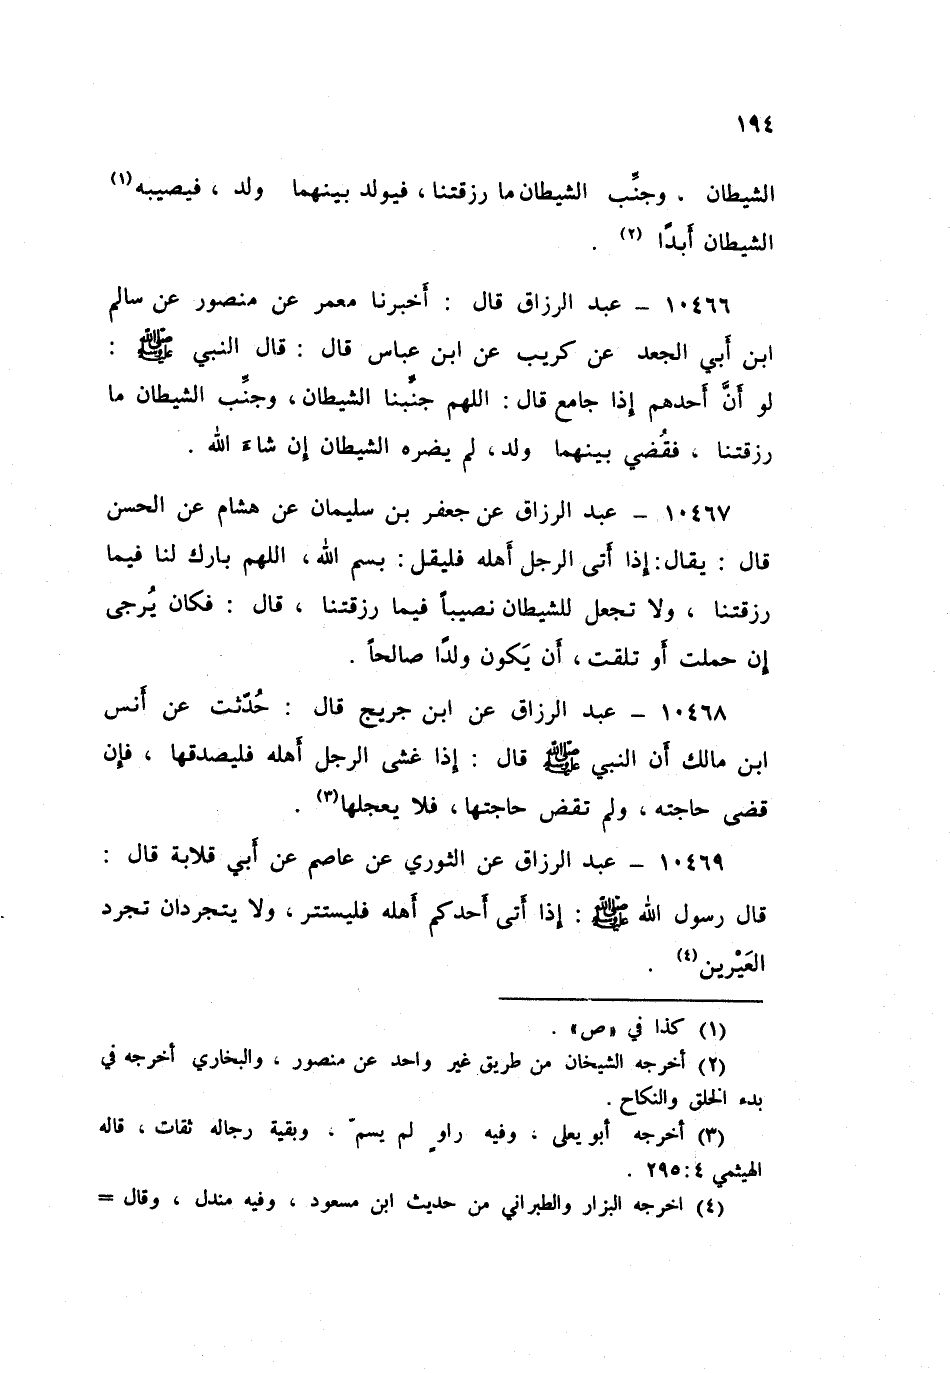 ١٩٤
الشيطان . وجنِّب الشيطان ما رزقتنا ، فيولد بينهما ولد ، فيصيبه(١)
الشيطان أبدًا (٢) .
١٠٤٦٦ – عبد الرزاق قال : أخبرنا معمر عن منصور عن سالم
ابن أبي الجعد عن كريب عن ابن عباس قال : قال النبي ﷺ :
لو أنَّ أحدهم إذا جامع قال : اللهم جنِّبنا الشيطان ، وجنِّب الشيطان ما
رزقتنا ، فقُضي بينهما ولد ، لم يضره الشيطان إن شاء الله .
١٠٤٦٧ – عبد الرزاق عن جعفر بن سليمان عن هشام عن الحسن
قال : يقال : إذا أتى الرجل أهله فليقل : بسم الله ، اللهم بارك لنا فيما
رزقتنا ، ولا تجعل للشيطان نصيباً فيما رزقتنا ، قال : فكان يُرجى
إن حملت أو تلقت ، أن يَكون ولدًا صالحاً .
١٠٤٦٨ – عبد الرزاق عن ابن جريج قال : حُدّثت عن أنس
ابن مالك أن النبي ﷺ قال : إذا غشى الرجل أهله فليصدقها ، فإن
قضى حاجته ، ولم تقض حاجتها ، فلا يعجلها(٣) .
١٠٤٦٩ – عبد الرزاق عن الثوري عن عاصم عن أبي قلابة قال :
قال رسول الله ﷺ : إذا أتى أحدكم أهله فليستتر ، ولا يتجردان تجرد
العَيْرين(٤) .
(١) كذا في «ص» .
(٢) أخرجه الشيخان من طريق غير واحد عن منصور ، والبخاري أخرجه في
بدء الخلق والنكاح .
(٣) أخرجه أبو يعلى ، وفيه راوٍ لم يسمّ ، وبقية رجاله ثقات ، قاله
الهيثمي ٤ : ٢٩٥ .
(٤) اخرجه البزار والطبراني من حديث ابن مسعود ، وفيه مندل ، وقال =